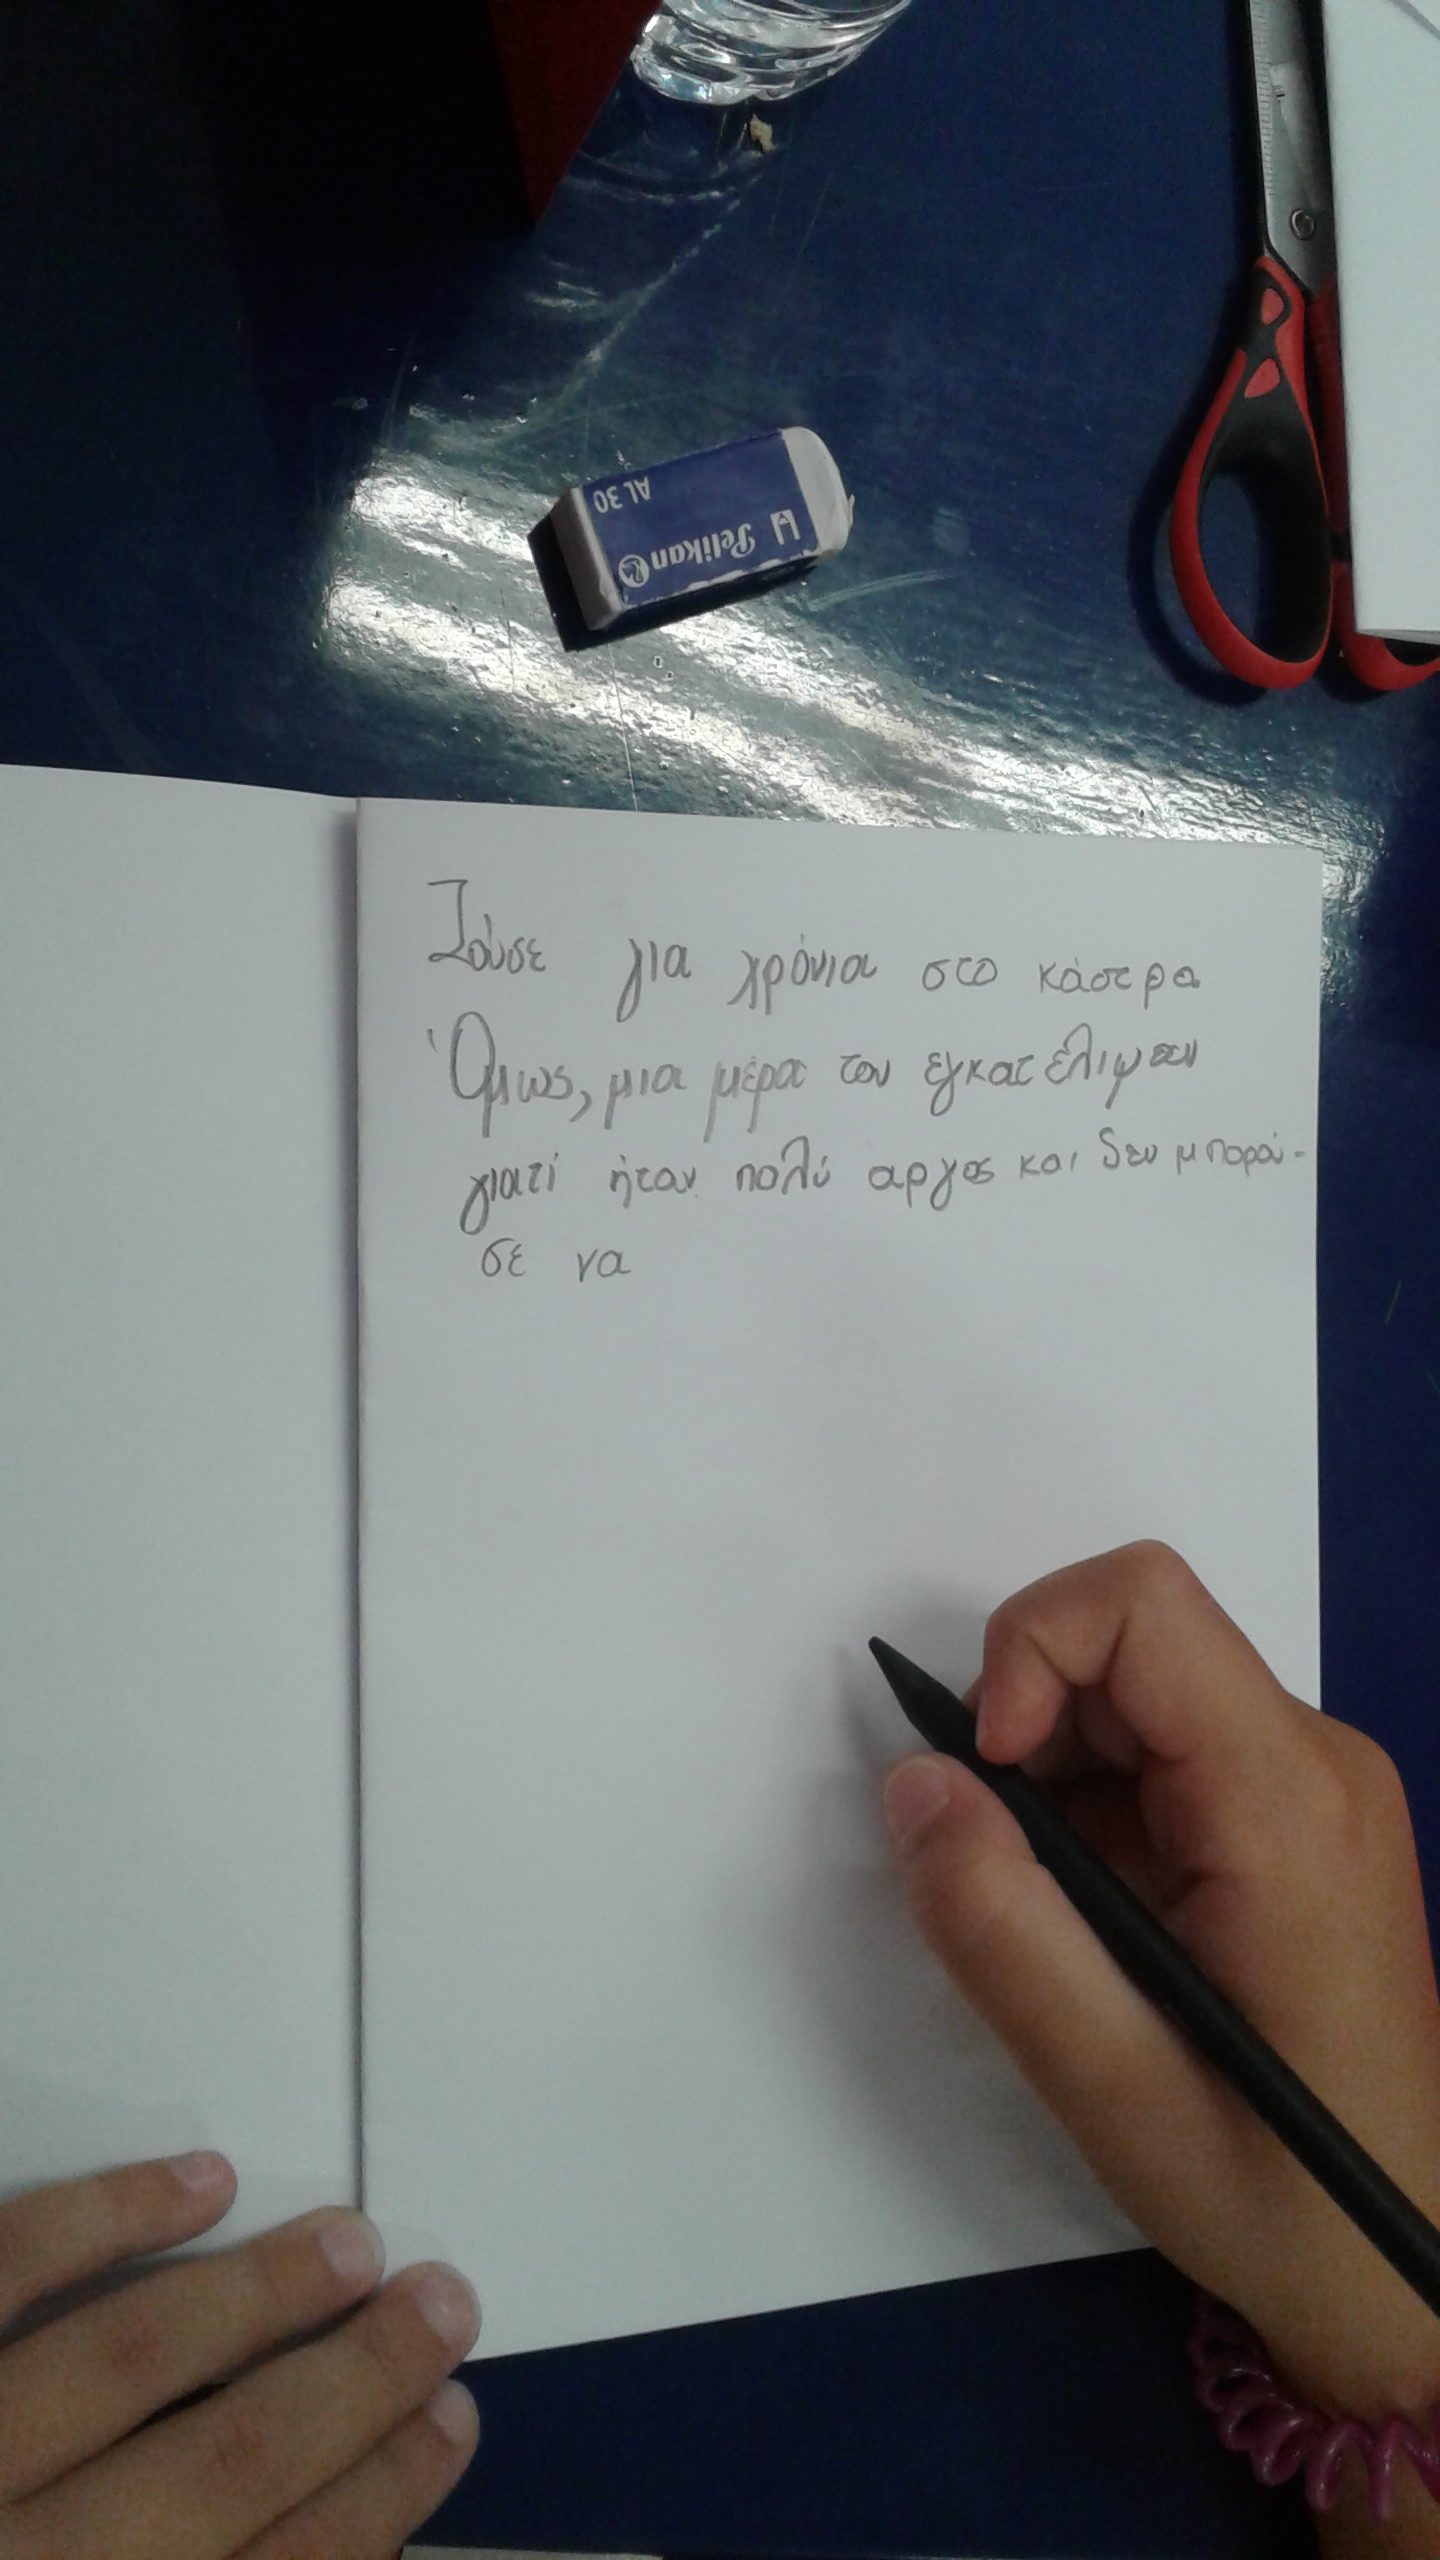 AL 30
Pelikan
Ζούσε για χρόνια στο κάστρα
Όμως, μια μέρα τον εγκατέλιψαν
γιατί ήταν πολύ αργος και δεν μπορού-
σε να